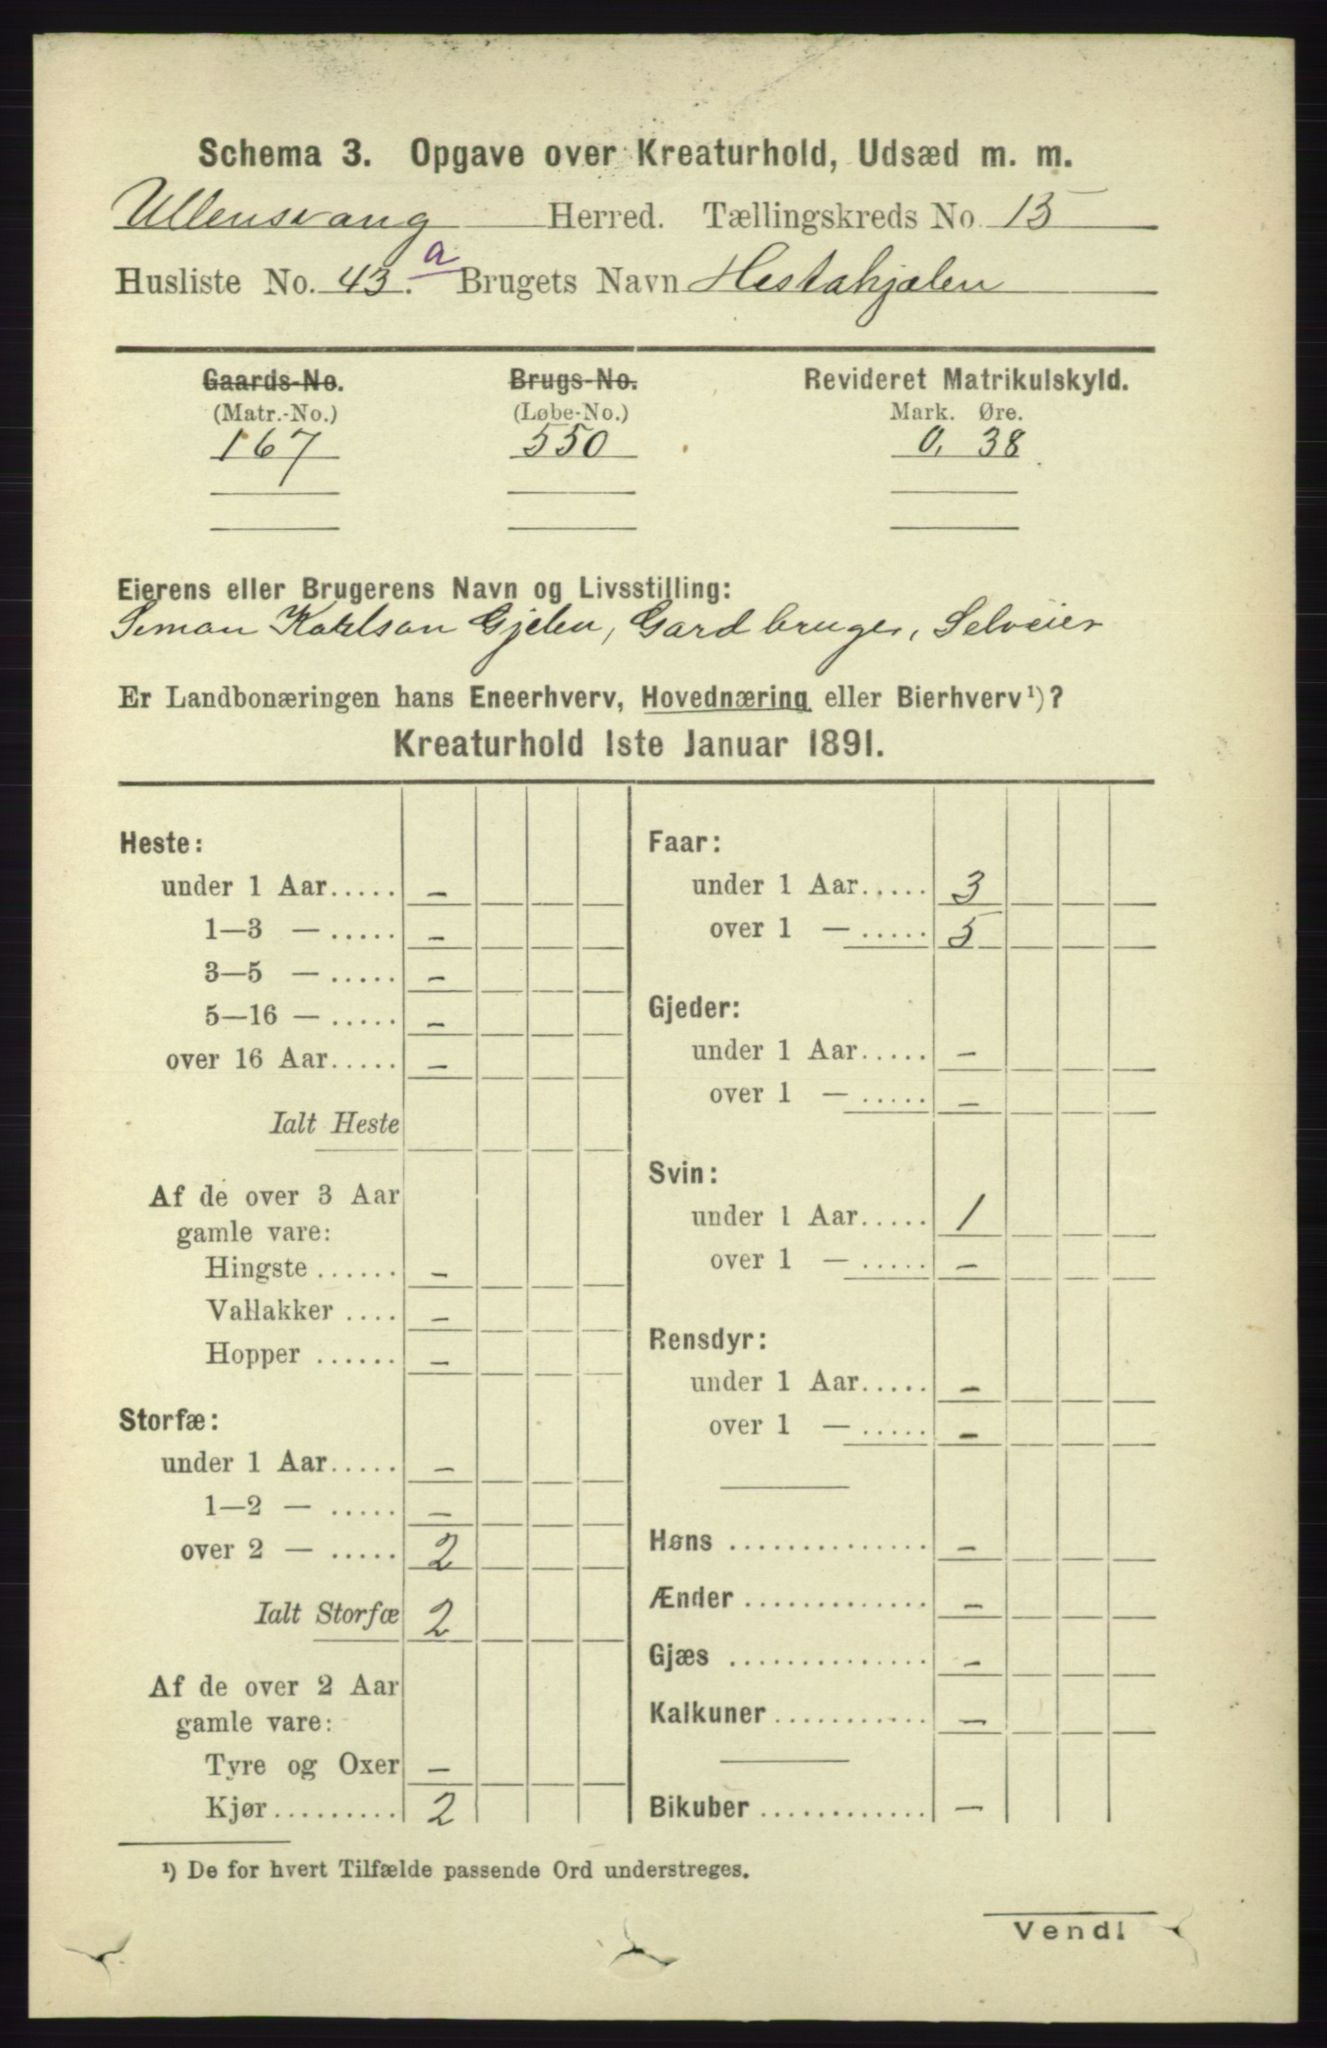 Schema 3. Opgave over Kreaturhold, Udsæd m. m.
Ullensvang Herred. Tællingskreds No. 13
Husliste No. 43.a Brugets Navn Hestahjælen
Gaards-No. Brugs-No. Revideret Matrikulskyld.
(Matr.-No.) (Løbe-No.) Mark. Øre.
167 550 0, 38
Eierens eller Brugerens Navn og Livsstilling:
Simon Gjelen, Gardbruger, Selveier
Er Landbonæringen hans Eneerhverv, Hovednæring eller Bierhverv¹)?
Kreaturhold 1ste Januar 1891.
Heste:
under 1 Aar..... –
1—3 — ..... –
3—5 — ..... –
5—16 — ..... –
over 16 Aar..... –
Ialt Heste
Af de over 3 Aar
gamle vare:
Hingste ...... –
Vallakker .... –
Hopper ...... –
Storfæ:
under 1 Aar..... –
1—2 — ..... –
over 2 — ..... 2
Ialt Storfæ 2
Af de over 2 Aar
gamle vare:
Tyre og Oxer –
Kjør......... 2
Faar:
under 1 Aar..... 3
over 1 — ..... 5
Gjeder:
under 1 Aar..... –
over 1 — ..... –
Svin:
under 1 Aar..... 1
over 1 — ..... –
Rensdyr:
under 1 Aar..... –
over 1 — ..... –
Høns .............. –
Ænder ............. –
Gjæs .............. –
Kalkuner........... –
Bikuber ............ –
¹) De for hvert Tilfælde passende Ord understreges.
Vend!